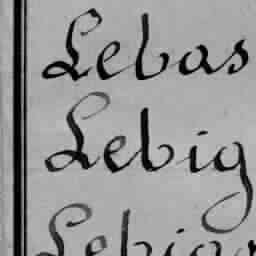 Lebas
Lebig